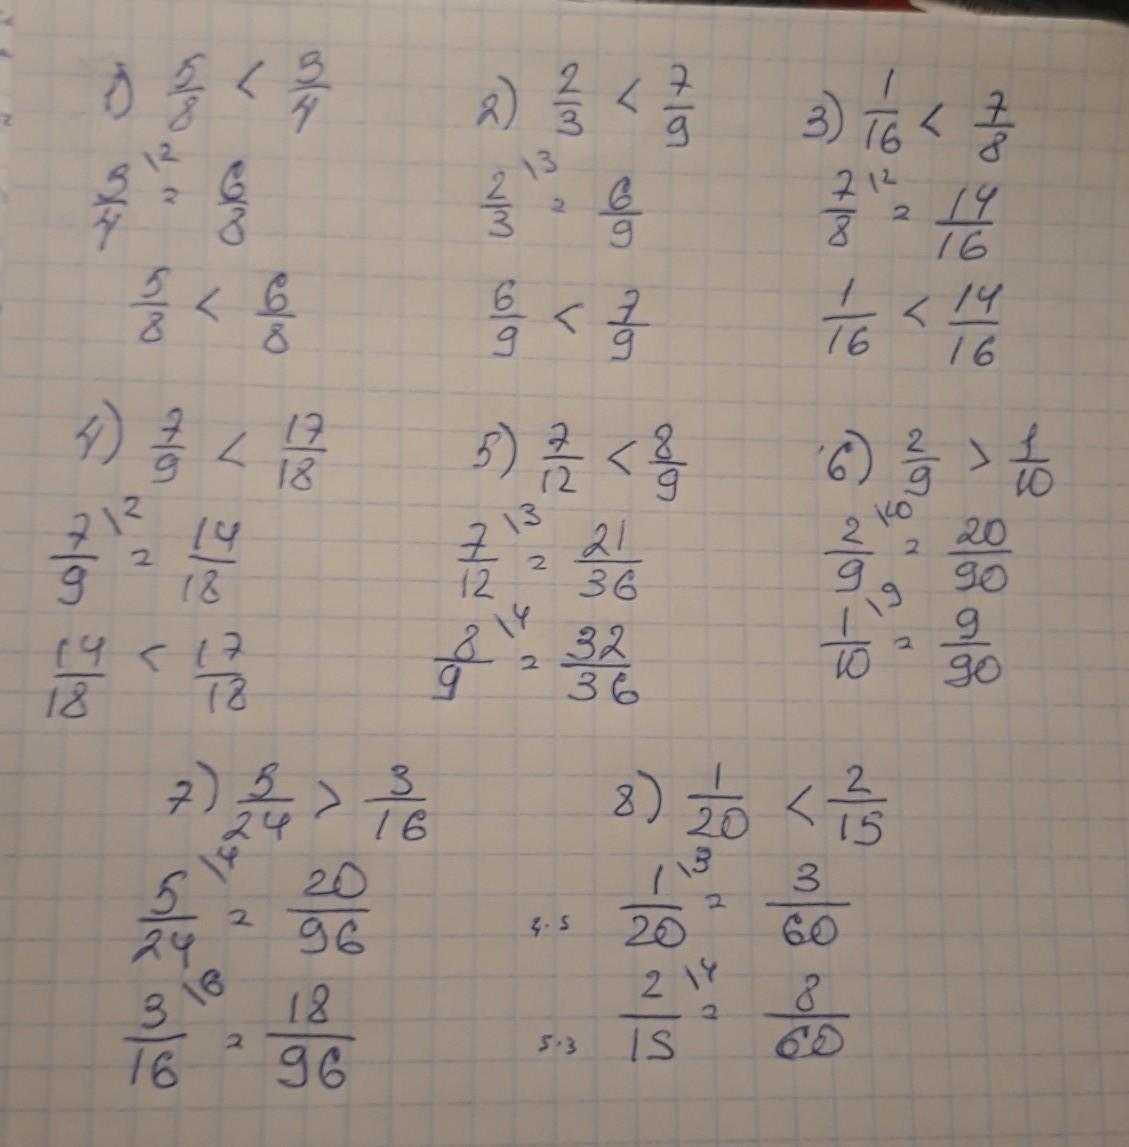 1) 5/8 < 3/4
3/4 \2 = 6/8
5/8 < 6/8
2) 2/3 < 7/9
2/3 \3 = 6/9
6/9 < 7/9
3) 1/16 < 7/8
7/8 \2 = 14/16
1/16 < 14/16
4) 7/9 < 17/18
7/9 \2 = 14/18
14/18 < 17/18
5) 7/12 < 8/9
7/12 \3 = 21/36
8/9 \4 = 32/36
6) 2/9 > 1/10
2/9 \10 = 20/90
1/10 \9 = 9/90
7) 5/24 > 3/16
5/24 \4 = 20/96
3/16 \6 = 18/96
8) 1/20 < 2/15
4·5 1/20 \3 = 3/60
5·3 2/15 \4 = 8/60